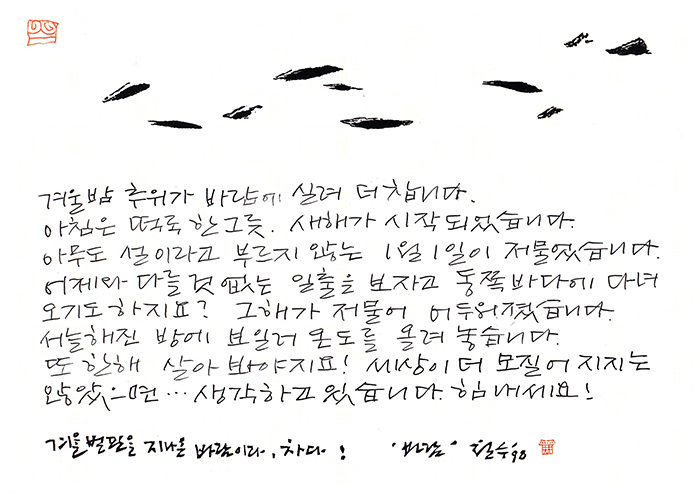 겨울밤 추위가 바람에 실려 더 찹니다.
아침은 떡국 한그릇. 새해가 시작되었습니다.
아무도 설이라고 부르지 않는 1월 1일이 저물었습니다.
어제와 다를것 없는 일출을 보자고 동쪽바다에 다녀
오기도 하지요? 그해가 저물어 어두워졌습니다.
서늘해진 방에 보일러 온도를 올려 놓습니다.
또 한해 살아 봐야지요! 세상이 더 모질어 지지는
않았으면… 생각하고 있습니다. 힘내세요!
겨울벌판을 지나온 바람이라, 차다! "바람" 철수 98